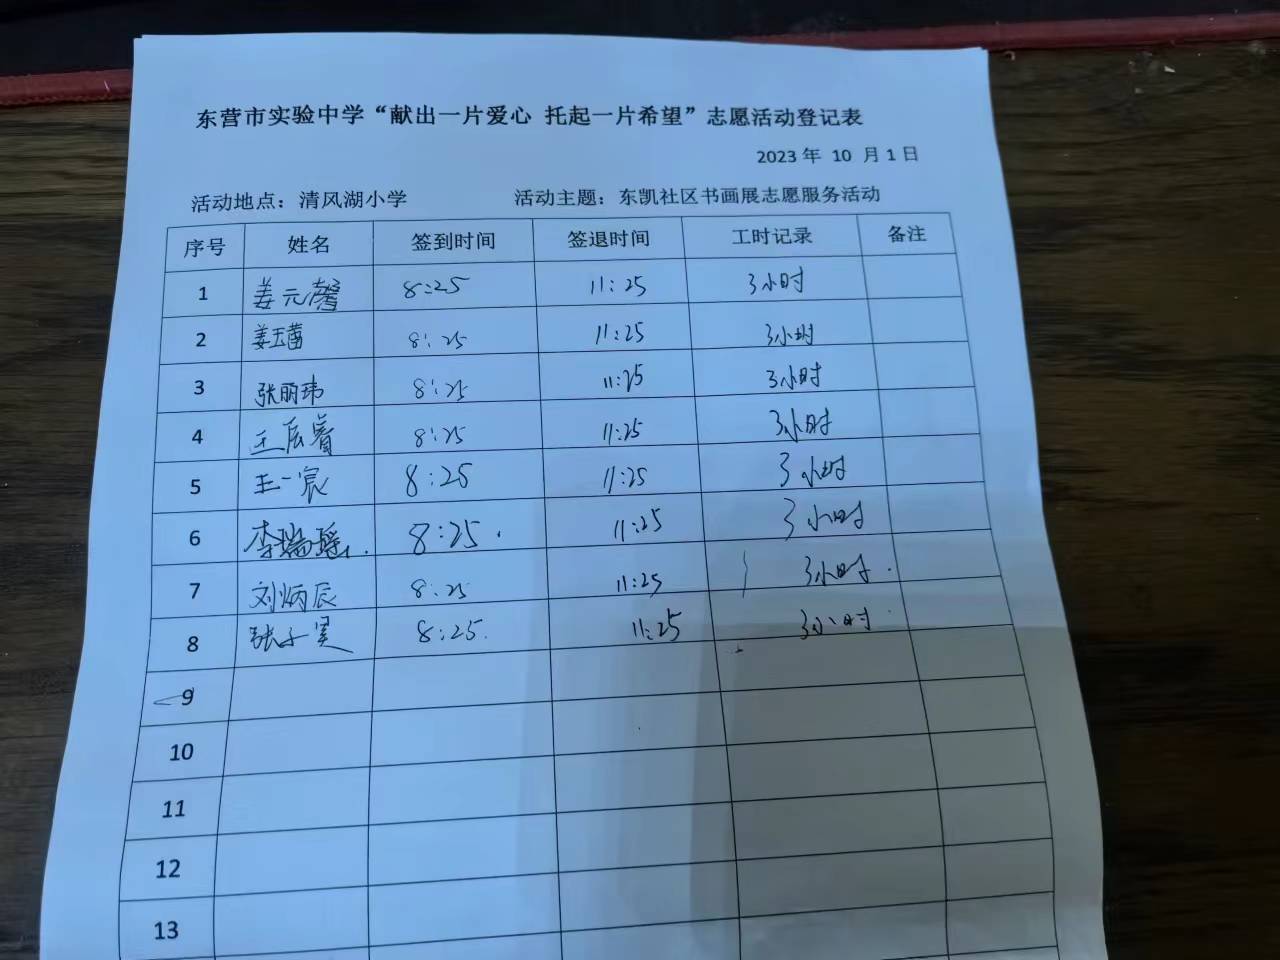 东营市实验中学“献出一片爱心 托起一片希望”志愿活动登记表
2023 年 10 月 1 日
活动地点：清风湖小学 活动主题：东凯社区书画展志愿服务活动
序号 姓名 签到时间 签退时间 工时记录 备注
1 姜元馨 8:25 11:25 3小时
2 姜玉菡 8:25 11:25 3小时
3 张丽玮 8:25 11:25 3小时
4 王辰睿 8:25 11:25 3小时
5 王一宸 8:25 11:25 3小时
6 李瑞瑶 8:25 11:25 3小时
7 刘炳辰 8:25 11:25 3小时
8 张子昊 8:25 11:25 3小时
9
10
11
12
13